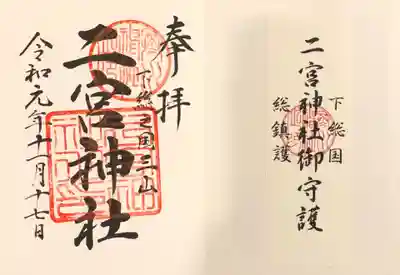 奉拝
下総之国三山
二宮神社
令和元年十一月十七日
下総国
二宮神社御守護
総鎮護